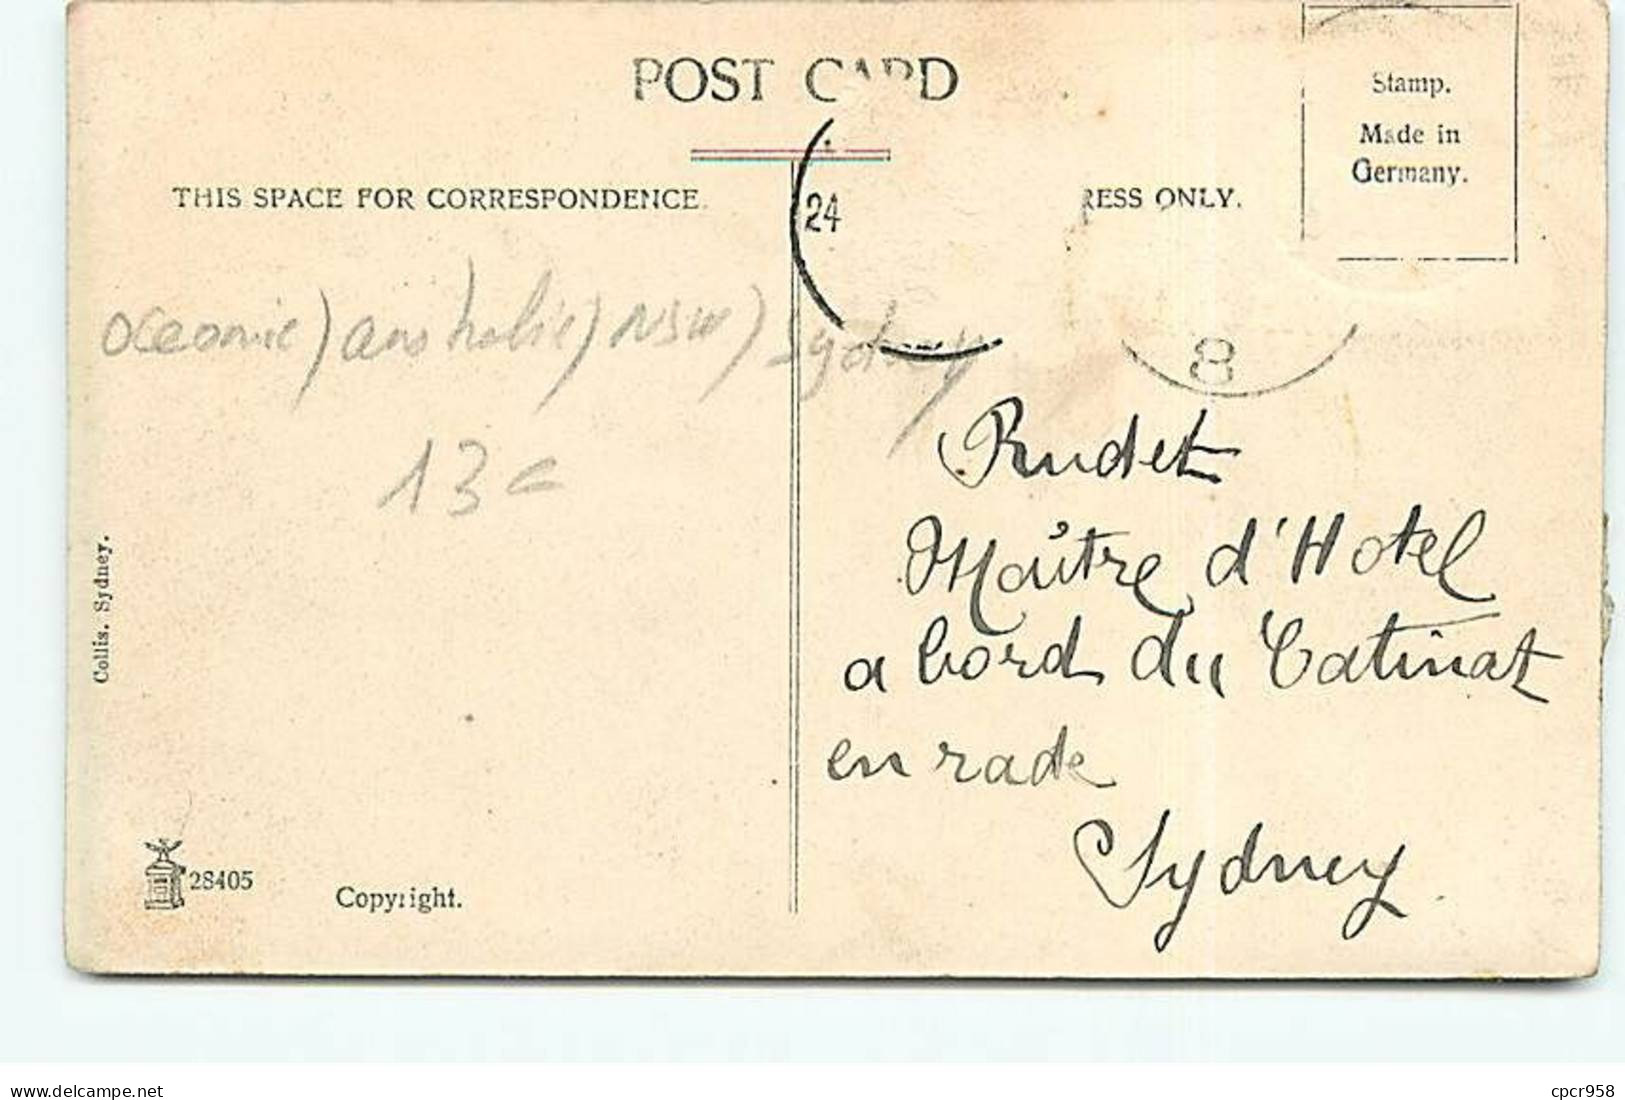 POST CARD
Stamp.
Made in
Germany.
THIS SPACE FOR CORRESPONDENCE.
RESS ONLY.
24
8
oceanie) australie) NSW) Sydney
13€
Rudet
Maître d'Hotel
a bord du Catinat
en rade
Sydney
Collis. Sydney.
28405
Copyright.
www.delcampe.net
cpcr958